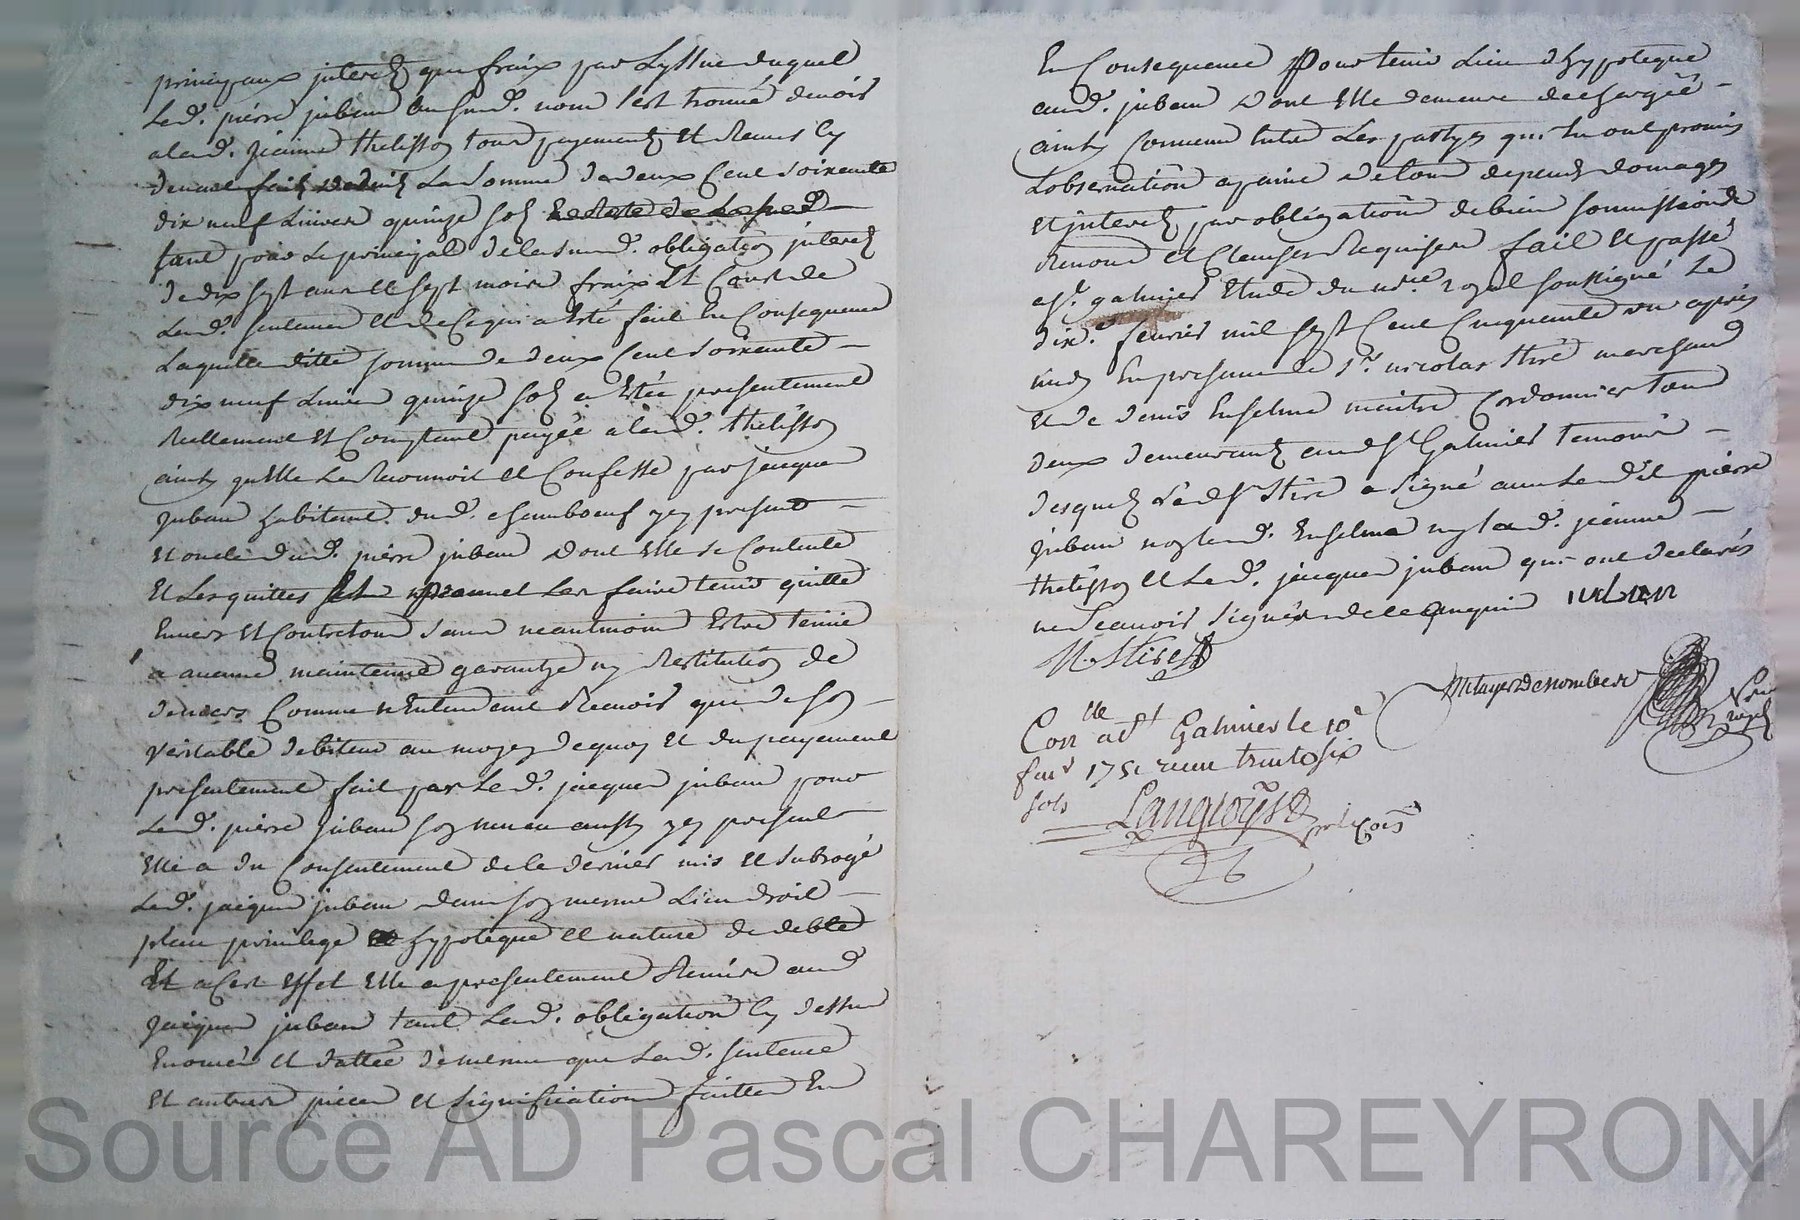 principaux interets que fraix par Lyssüe duquel
Led. pierre juban aud. nom s'est trouvé devoir
a lad. jeanne thelisson tous payements et
deniers faits La somme de deux Cent soixante
dix neuf Livres quinze sols
tant pour Le principal de la susd. obligation interets
de dix sept ans et sept mois fraix Et Coust de
Lad. sentence et de Ce qui a Esté fait En Consequence
Laquelle ditte somme de deux Cent soixante
dix neuf Livres quinze sols a Estée presentement
Reellement Et Comptant payée a lad. thelisson
ainsy qu'elle Le Reconnoit et Confesse par jacques
juban habitant dud. chambœuf icy present
et oncle dud. pierre juban dont elle se Contente
Et Les quitte promet Les faire tenir quitte
Envers Et Contre tous sans neantmoins Estre tenüe
a aucune maintenüe garantye ny Restitution de
deniers Comme n'Entendant Recevoir que de son
veritable debiteur au moyen dequoy Et du payement
presentement fait par Led. jacques juban pour
Led. pierre juban son neveu aussy icy present
Elle a du Consentement de ce dernier mis et subrogé
Led. jacques juban dans son mesme Lieu droit
place privilege hypoteque et nature de debte
Et a Cest Effet Elle a presentement Remise aud.
jacques juban tant Lad. obligation Cy dessus
Enoncée et dattée de mesme que Lad. sentence
Et autres pieces et significations faittes En
En Consequence Pour tenir Lieu d'hypoteque
aud. juban dont Elle demeure dechargée
ainsy Convenu Entre Les partyes qui En ont promis
L'observation a peine de tous depends domages
Et interets par obligation de biens soumissions
Renonc. et Clauses Requises fait Et passé
a St. galmier Etude du no.re royal soussigné Le
dix.e fevrier mil sept Cent Cinquante un apres
midy En presence de Sr. nicolas Stire marchand
Et de denis Enselme maitre Cordonnier tous
deux demeurants aud St Galmier temoins
desquels Led Sr Stire a signé avec Led. pierre
juban non led. Enselme ny lad. jeanne
thelisson et Led. jacques juban qui ont declarés
ne sçavoir signer de ce Enquis juban
N. Stire
Con.lle a St Galmier le 10e
fev.r 1751 reçu trente six
sols Langloys